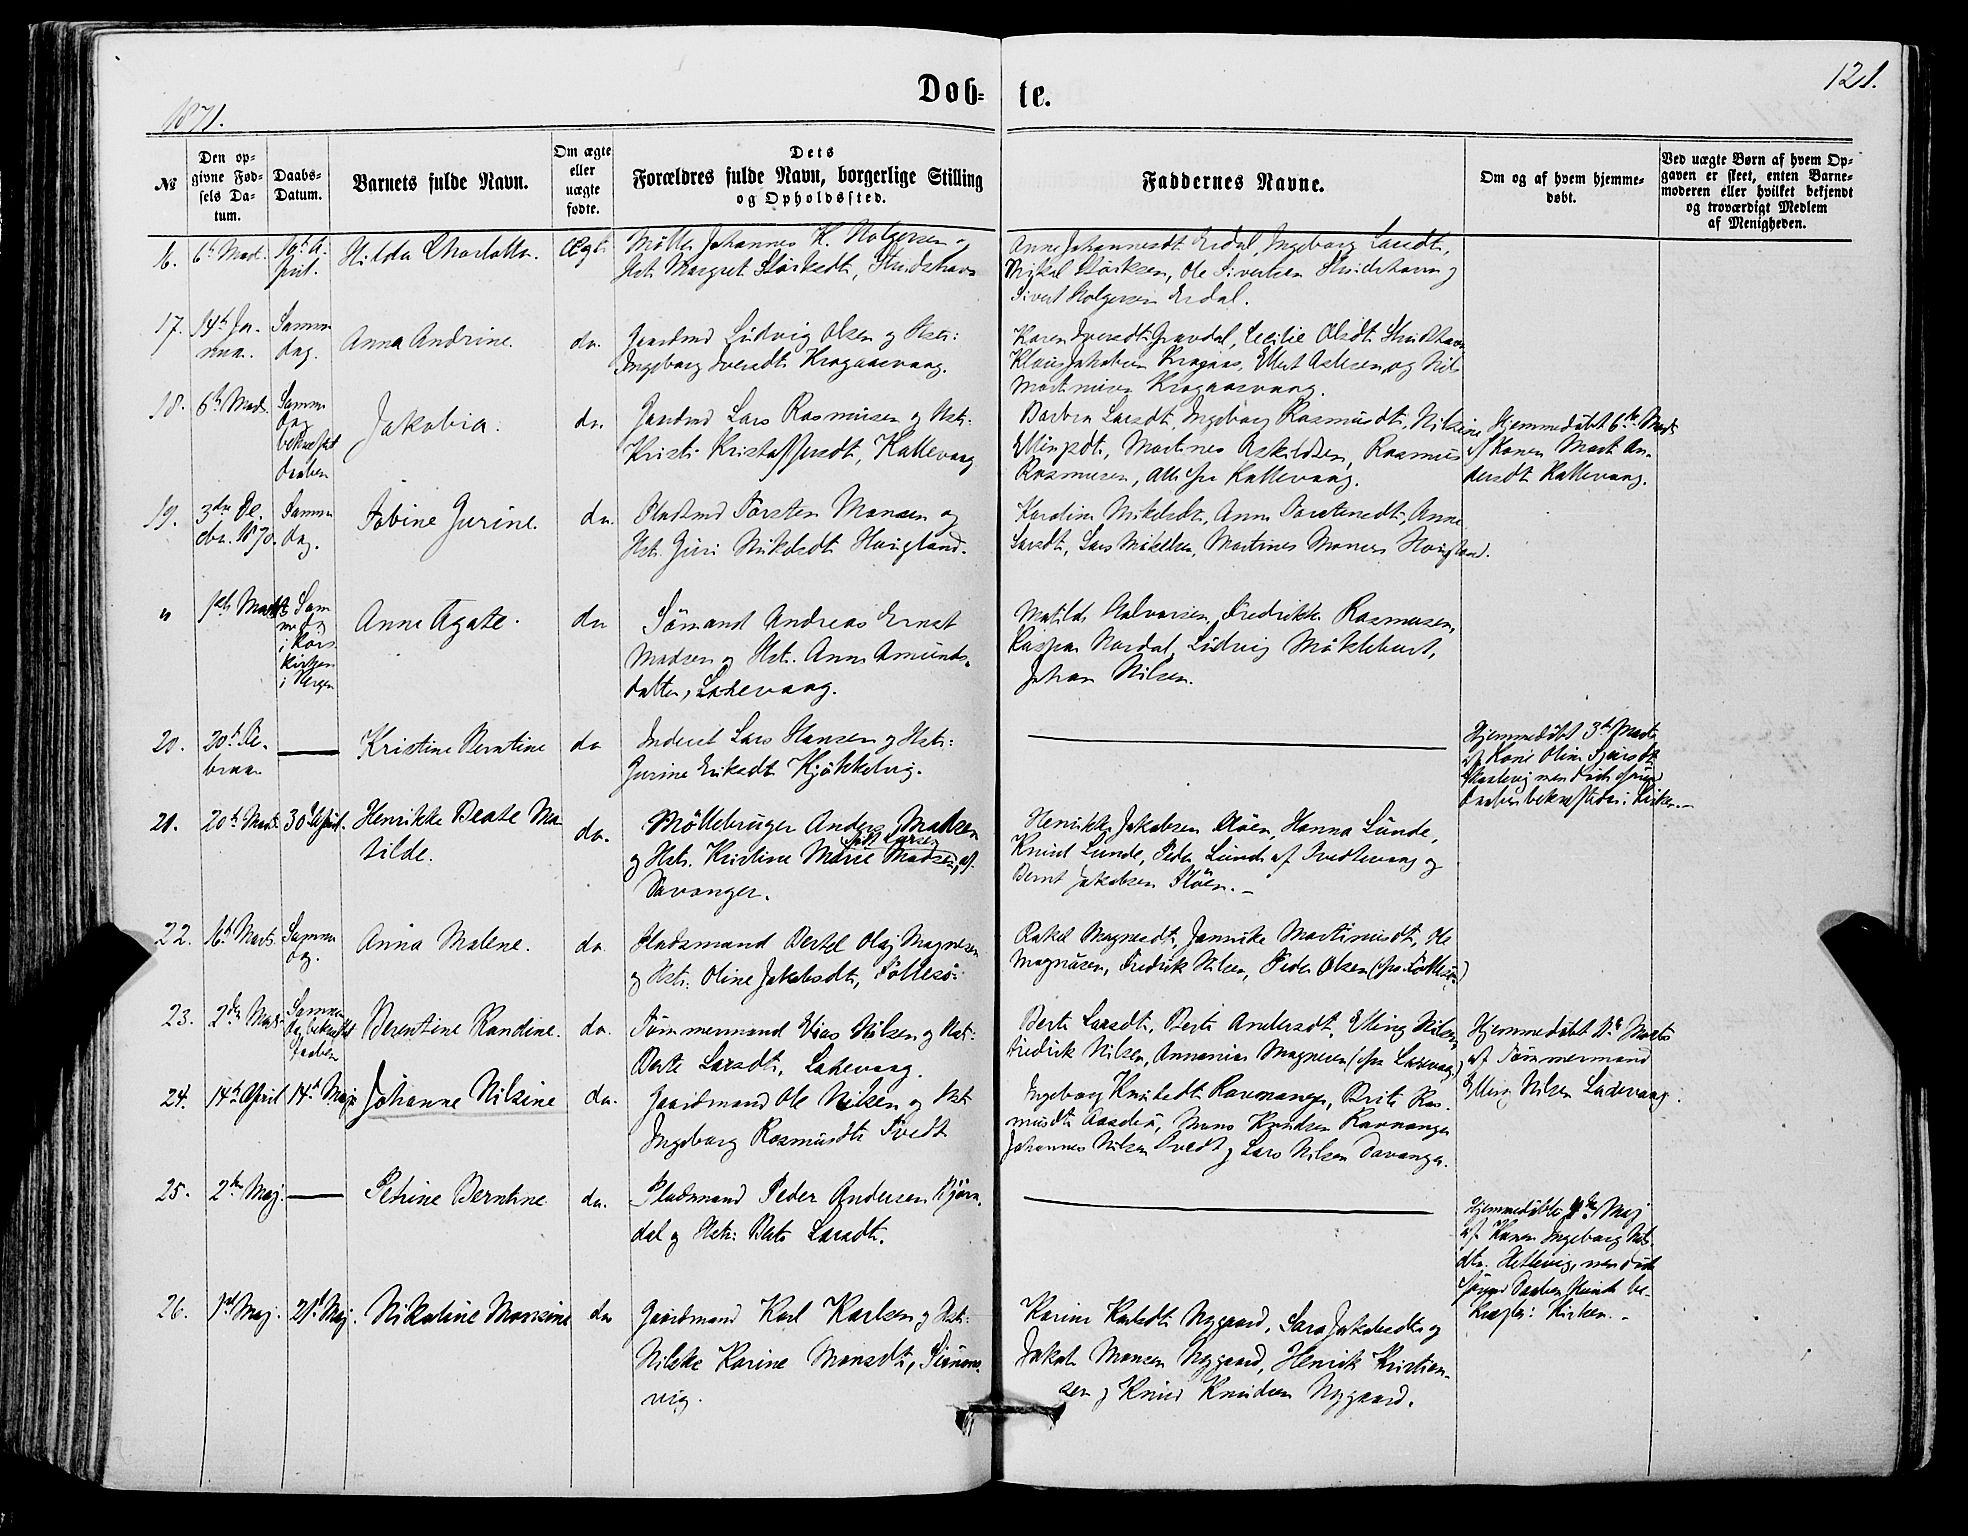 1871.
Døb- te.
121.
№
Den op-
givne Fød-
sels Da-
tum.
Daabs-
Datum.
Barnets fulde Navn.
Om ægte
eller
uægte
fødte.
Dets
Forældres fulde Navn, borgerlige Stilling
og Opholdssted.
Faddernes Navne.
Om og af hvem hjemme-
døbt.
Ved uægte Børn af hvem Op-
gaven er skeet, enten Barne-
moderen eller hvilket bekjendt
og troværdigt Medlem
af Menigheden.
16. 6te Mart. 10de A-
pril.
Hilda Charlotta.
Ægte
Møller Johannes K. Holgersen
Hst. Margret Størksdt,
Anne Johannesdt Erdal, Ingeborg Larsdt,
Mikal Størksen, Ole Sivertsen
Sivert Holgersen Erdal.
17. 14de Ja-
nuar.
Samme
dag.
Anna Andrine.
do.
Gaardmd Ludvig Olsen og Hstr:
Ingeborg Iversdt Krogaasvaag.
Karen Iversdt Gravdal, Cecilie Olsdt
Klaus Jakobsen Krogaas, Ellert og Nils
Martinusen Krogaasvaag.
18. 6te Marts.
Samme
dag
bekræftet
daaben
Jakobia.
do.
Gaardmd Lars Rasmusen og Hstr:
Kristi Kristoffersdt, Kallevaag
Barbra Larsdt, Ingeborg Rasmusdt, Nilsine
Ellingsdt, Martines Askildsen, Rasmus
Rasmusen, alle fra Kallevaag.
Hjemmedøbt 6te Marts
af Konen Mart An-
dersdt Kallevaag.
19. 3die De-
cbr. 1870.
Samme
dag.
Tobine Gurine.
do.
Pladsmd Torsten Monsen og
Hst. Guri Mikelsdt Haugland.
Karoline Mikelsdt, Anne Torstensdt, Anne
Larsdt, Lars Mikelsen, Martines Monsen Haugland.
" 1ste Marts
Sam-
me dag
i Kors-
kirken
i Bergen
Anne Agate.
do
Sømand Andreas Ernst
Madsen og Hst. Anne Amunds-
datter, Ladevaag.
Matilde Halvorsen, Fredrikke Rasmusen,
Kaspar Nordal, Ludvig Møklebust,
Johan Nilsen.
20. 20de Fe-
bruar.
Kristine Berntine
do
Inderst Lars Hansen og Hstr:
Gurine Eriksdt Kjøkkelvig.
Hjemmedøbt 3die Marts
af Kone Oline Sjursdt
men døde førend
daaben bekræftedes i Kirken.
21. 20de Marts. 30te April.
Henrikke Beate Ma-
tilde.
do.
Møllebruger Anders Madsen
og Hst. Kristine Marie Madsen, af
født Larsen
Davanger.
Henrikke Jakobsen Fløen, Hanna Lunde,
Knud Lunde, Peder Lunde af Tvedtevaag og
Bernt Jakobsen Fløen.
22. 16de Marts.
Samme
dag.
Anna Malene.
do.
Pladsmand Bertel Olaj Magnesen
og Hst: Oline Jakobsdt, Follesø.
Rakel Magnesdt, Jannike Martinusdt, Ole
Magnusen, Fredrik Nilsen, Peder Olsen (fra Follesø)
23. 2den Marts.
Samme
dag bekræftet
daaben
Berentine Randine.
do.
Tømmermand Elias Nilsen og Hst:
Berte Larsdt, Ladevaag.
Berte Larsdt, Berte Andersdt, Elling Nilsen,
Fredrik Nilsen, Annanias Magnesen (fra Ladevaag.)
Hjemmedøbt Marts
af Tømmermand
Elling Nilsen Ladevaag.
24. 14de April 14de Maj
Johanne Nilsine
do.
Gaardmand Ole Nilsen og Hst
Ingeborg Rasmusdt Tvedt
Ingeborg Knudsdt Ravnanger, Brite Ras-
musdt Mons Knudsen Ravnanger
Johannes Nilsen Tvedt og Lars Nilsen Davanger.
25. 2den Maj.
Petrine Berntine
do.
Pladsmand Peder Andersen Bjørn-
dal og Hstr: Berte Larsdt.
Hjemmedøbt Maj
af Konen Ingeborg Nils-
dtr. Hettevig, men døde
førend Daaben kunde be-
kræftes i Kirken.
26. 1ste Maj. 21de Maj.
Nikoline Monsine
do
Gaardmand Karl Karlsen og Hstr:
Nilske Karine Monsdt,
vig.
Karine Karlsdt Nygaard, Sara Jakobsdt og
Jakob Monsen Nygaard, Henrik Kristian-
sen og Knud Knudsen Nygaard.